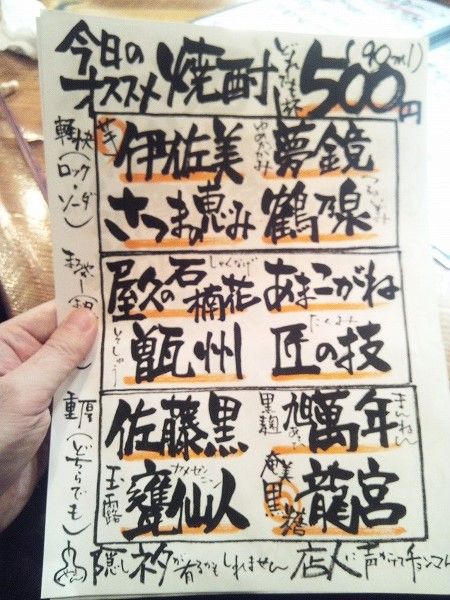 今日の
オススメ 焼酎 どれでも一杯 500円 (90ml)
軽快(ロック・ソーダ)
芋 伊佐美 夢鏡
さつまの恵み 鶴乃泉
屋久の石楠花 しゃくなげ あまこがね
甑州 そしゅう 匠の技 たくみ
重厚(どちらでも)
佐藤黒 黒麹 旭萬年 まんねん
玉露 甕仙人 カメセンニン 奄美黒糖 龍宮
隠しネタが有るかもしれません 店人に声がけて